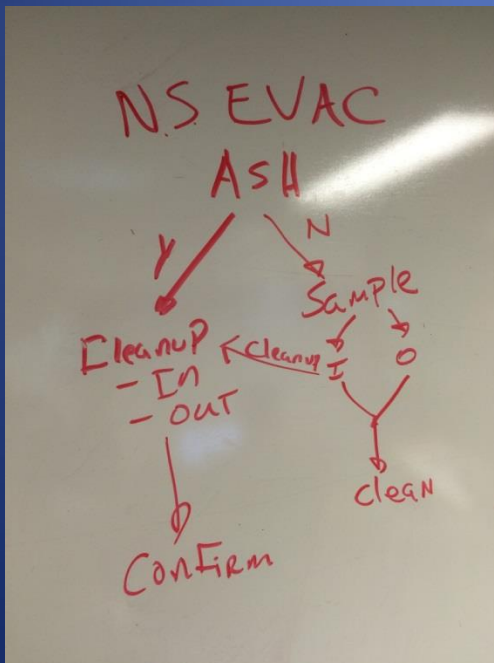 N.S. EVAC
ASH
Y
N
Sample
Cleanup
- In
- OUT
Cleanup
I
O
Clean
Confirm